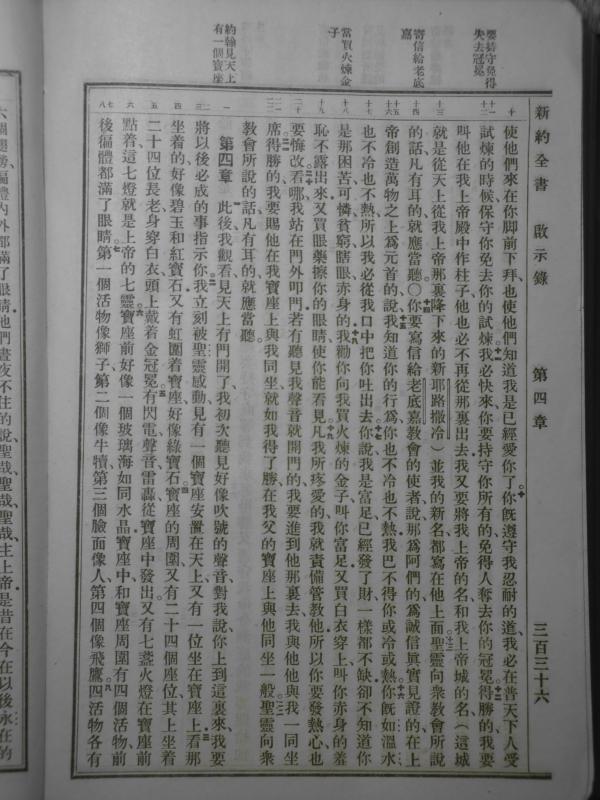 新約全書　啟示錄　第四章　三百三十六
要持守免得
失去冠冕
寄信給老底
嘉
當買火煉金
子
約翰見天上
有一個寶座
使他們來在你脚前下拜也使他們知道我是已經愛你了十你既遵守我忍耐的道我必在普天下人受
試煉的時候保守你免去你的試煉十一我必快來你要持守你所有的免得人奪去你的冠冕十二得勝的我要
叫他在我上帝殿中作柱子他也必不再從那裏出去我又要將我上帝的名和我上帝城的名（這城
就是從天上從我上帝那裏降下來的新耶路撒冷）並我的新名都寫在他上面十三聖靈向衆教會所說
的話凡有耳的就應當聽〇十四你要寫信給老底嘉教會的使者說那爲阿們的爲誠信眞實見證的在上
帝創造萬物之上爲元首的說十五我知道你的行爲你也不冷也不熱我巴不得你或冷或熱十六你既如溫水
也不冷也不熱所以我必從我口中把你吐出去十七你說我是富足已經發了財一樣都不缺卻不知道你
是那困苦可憐貧窮瞎眼赤身的十八我勸你向我買火煉的金子叫你富足又買白衣穿上叫你赤身的羞
恥不露出來又買眼藥擦你的眼睛使你能看見十九凡我所疼愛的我就責備管教他所以你要發熱心也
要悔改二十看哪我站在門外叩門若有聽見我聲音就開門的我要進到他那裏去我與他他與我一同坐
席二一得勝的我要賜他在我寶座上與我同坐就如我得了勝在我父的寶座上與他同坐一般二二聖靈向衆
教會所說的話凡有耳的就應當聽
第四章　一此後我觀看見天上有門開了我初次聽見好像吹號的聲音對我說你上到這裏來我要
將以後必成的事指示你二我立刻被聖靈感動見有一個寶座安置在天上又有一位坐在寶座上三看那
坐着的好像碧玉和紅寶石又有虹圍着寶座好像綠寶石四寶座的周圍又有二十四個座位其上坐着
二十四位長老身穿白衣頭上戴着金冠冕五有閃電聲音雷轟從寶座中發出又有七盞火燈在寶座前
點着這七燈就是上帝的七靈六寶座前好像一個玻璃海如同水晶寶座中和寶座周圍有四個活物前
後徧體都滿了眼睛七第一個活物像獅子第二個像牛犢第三個臉面像人第四個像飛鷹八四活物各有
六個翅膀徧體內外都滿了眼睛他們晝夜不住的說聖哉聖哉聖哉主上帝是昔在今在以後永在的